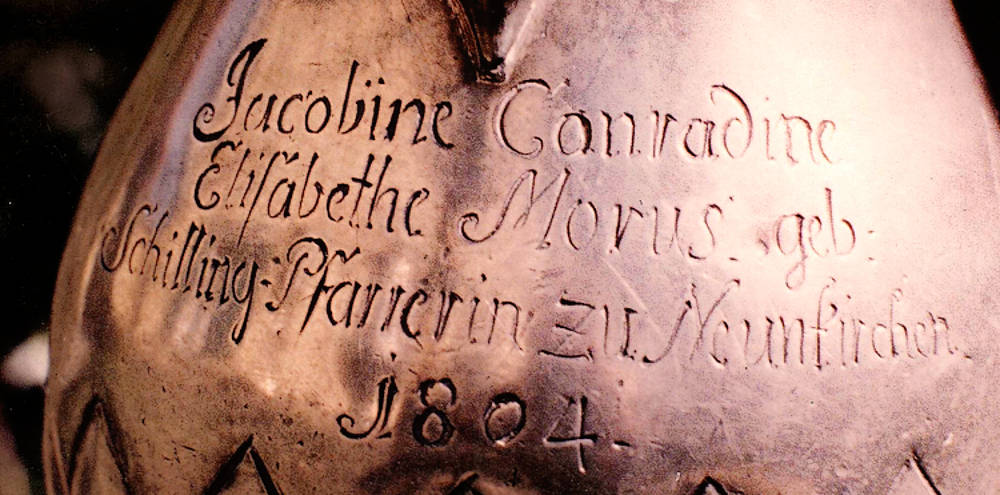 Jacobine Conradine
Eliſabethe Morus geb:
Schilling Pfarrerin zu Neunkirchen.
1804.